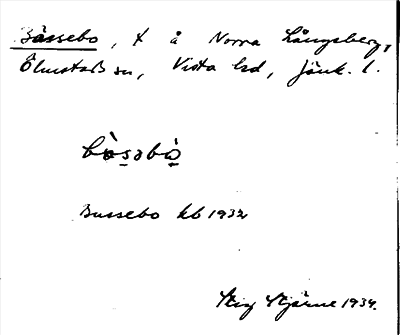 Bässebo, t å Norra Långsberg,
Ölmstads sn, Vista hd, Jönk. l.
bàsəbò
Bussebo kb 1932
Stig Stjärne 1934.